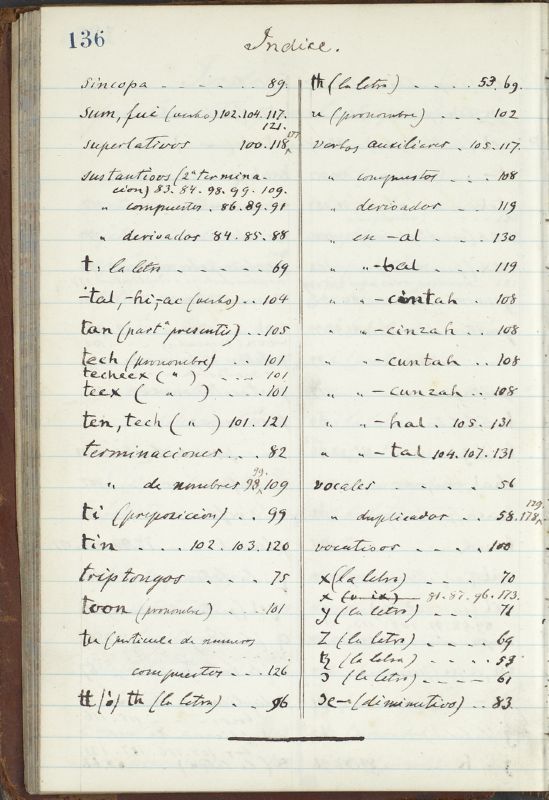 136
Indice.
sincopa - - - - - - 89.
sum, fui (verbo) 102.104.117.
121.
superlativos 100.118
sustantivos (2ª termina-
cion) 83. 84. 98. 99. 109.
" compuestos . 86.89.91
" derivados 84. 85. 88
t: la letra - - - - - 69
-tal, -hi-ac (verbo) . . 104
tan (partª presente) . . 105
tech (pronombre) . . . 101
techeex ( " ) . . . . 101
teex ( " ) . . . . 101
ten, tech ( " ) 101. 121
terminaciones . . . 82
99.
" de nombres 98.109
ti (preposicion) . . . 99
tin . . . . 102. 103. 120
triptongos - - - - 75
toon (pronombre) . . . 101
tu (particula de numeros
compuestos - - - 126
tt (ó) th (la letra) - . . 96
th (la letra) . . . . . 53. 69.
u (pronombre) . . . 102
verbos auxiliares . 105. 117.
" compuestos - - - 108
" derivados - - - 119
" en -al - - - 130
" " -bal - - - 119
" " -cintah . 108
" " -cinzah . . 108
" " -cuntah . . 108
" " -cunzah . . 108
" " -hal . 105. 131
" " -tal 104. 107. 131
vocales - - - - 56
129.
" duplicadas . . . 58.178
vocativos - - - - 100
x (la letra) - - - - - 70
x 81. 87. 96. 173.
y (la letra) - - - - - 71
z (la letra) - - - - - 69
tz (la letra) - - - - 53
ɔ (la letra) - - - - - 61
xe- (diminutivo) . . 83.